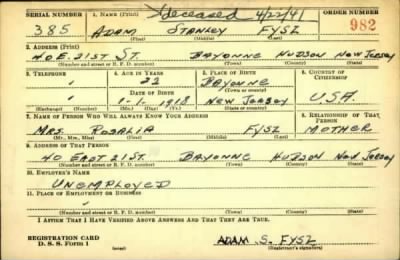 *deceased 4/22/41
SERIAL NUMBER 1. NAME (Print) ORDER NUMBER
385 ADAM STANLEY FYSZ 982
(First) (Middle) (Last)
2. ADDRESS (Print)
40 E. 21ST ST. BAYONNE HUDSON NEW JERSEY
(Number and street or R. F. D. number) (Town) (County) (State)
3. TELEPHONE 4. AGE IN YEARS 5. PLACE OF BIRTH 6. COUNTRY OF CITIZENSHIP
22 BAYONNE
DATE OF BIRTH (Town or county)
1-1-1918 NEW JERSEY U.S.A.
(Exchange) (Number) (Mo.) (Day) (Yr.) (State or country)
7. NAME OF PERSON WHO WILL ALWAYS KNOW YOUR ADDRESS 8. RELATIONSHIP OF THAT PERSON
MRS. ROSALIA FYSZ MOTHER
(Mr., Mrs., Miss) (First) (Middle) (Last)
9. ADDRESS OF THAT PERSON
40 EAST 21 ST. BAYONNE HUDSON NEW JERSEY
(Number and street or R. F. D. number) (Town) (County) (State)
10. EMPLOYER'S NAME
UNEMPLOYED
11. PLACE OF EMPLOYMENT OR BUSINESS
(Number and street or R. F. D. number) (Town) (County) (State)
I AFFIRM THAT I HAVE VERIFIED ABOVE ANSWERS AND THAT THEY ARE TRUE.
REGISTRATION CARD
D. S. S. Form 1 (over) ADAM S. FYSZ
(Registrant's signature)